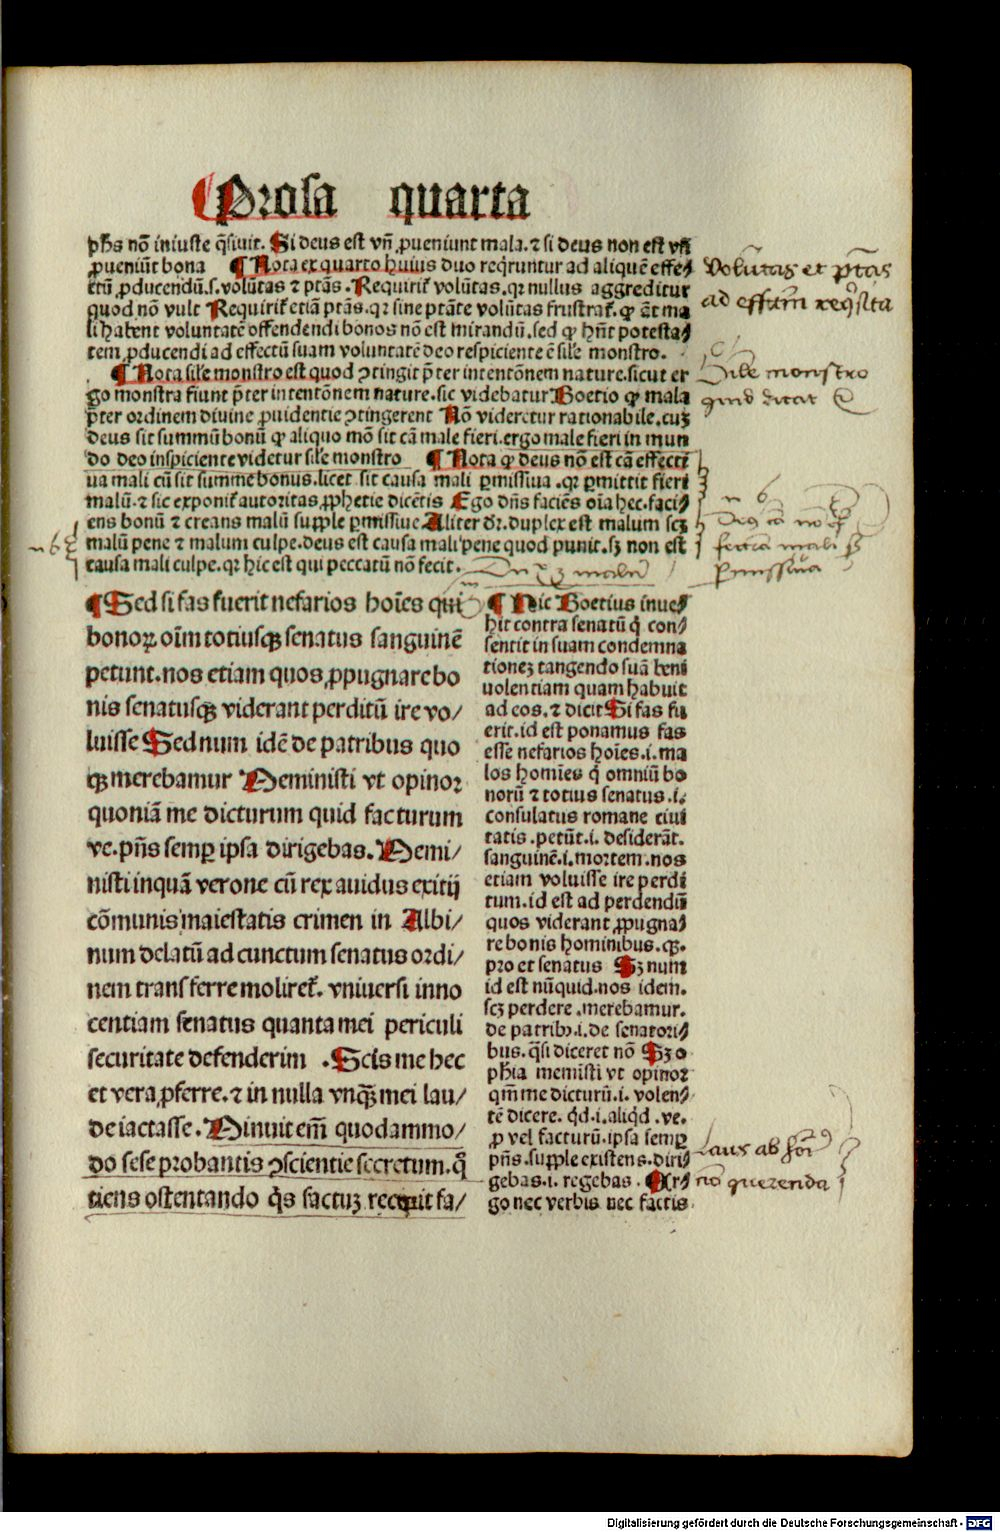 Prosa quarta
phs nō iniuste q̄siuit. Si deus est vn̄ ꝓueniunt mala. ⁊ si deus non est vn̄
ꝓueniūt bona ¶ Nota ex quarto huius duo reqͥruntur ad aliquē effe/
ctū ꝓducendū .s. volūtas ⁊ ptās. Requiriť volūtas. qꝛ nullus aggreditur
quod nō vult Requiriť etiā ptās. qꝛ sine ptāte volūtas frustrať. ꝙ aūt ma
li habent voluntatē offendendi bonos nō est mirandū. sed ꝙ hn̄t potesta/
tem ꝓducendi ad effectū suam voluntatē deo respiciente ē sile monstro.
¶ Nota sile monstro est quod ↄtingit p̄ter intentōnem nature. sicut er
go monstra fiunt p̄ter intentōnem nature. sic videbatur Boetio ꝙ mala
p̄ter ordinem diuine ꝓuidentie ↄtingerent Nō videretur rationabile. cuꝫ
deus sit summū bonū ꝙ aliquo mō sit cā male fieri. ergo male fieri in mun
do deo inspiciente videtur sile monstro ¶ Nota ꝙ deus nō est cā effecti
ua mali cū sit summe bonus. licet sit causa mali ꝑmissiua. qꝛ ꝑmittit fieri
malū. ⁊ sic exponiť autoritas ꝓphetie dicētis Ego dn̄s faciēs oīa hec. faci/
ens bonū ⁊ creans malū supple ꝑmissiue Aliter dr̄. duplex est malum scꝫ
malū pene ⁊ malum culpe. deus est causa mali pene quod punit. sꝫ non est
causa mali culpe. qꝛ hic est qui peccatū nō fecit.
¶ Sed si fas fuerit nefarios hoīes qui
bonoꝝ oīm totiusqꝫ senatus sanguinē
petunt. nos etiam quos ꝓpugnare bo
nis senatusqꝫ viderant perditū ire vo/
luisse Sed num idē de patribus quo
qꝫ merebamur Meministi vt opinoꝛ
quoniā me dicturum quid facturum
ve. pn̄s semꝑ ipsa dirigebas. Memi/
nisti inquā verone cū rex auidus exitij
cōmunis maiestatis crimen in Albi/
num delatū ad cunctum senatus ordi/
nem transferre molireť. vniuersi inno
centiam senatus quanta mei periculi
securitate defenderim . Scis me hec
et vera ꝓferre. ⁊ in nulla vnqꝫ mei lau/
de iactasse. Minuit em̄ quodammo/
do sese probantis ↄscientie secretum. q̄
tiens ostentando qͥs factuꝫ recipit fa/
¶ Hic Boetius inue/
hit contra senatū qͥ con/
sentit in suam condemna
tioneꝫ tangendo suā beni
uolentiam quam habuit
ad eos. ⁊ dicit Si fas fu
erit. id est ponamus fas
esse nefarios hoīes .i. ma
los homīes qͥ omniū bo
norū ⁊ totius senatus .i.
consulatus romane ciui
tatis. petūt .i. desiderāt.
sanguinē .i. mortem. nos
etiam voluisse ire perdi
tum. id est ad perdendū
quos viderant ꝓpugna/
re bonis hominibus. qꝫ.
pro et senatus Sꝫ num
id est nūquid. nos idem.
scꝫ perdere. merebamur.
de patribꝰ .i. de senatori/
bus. q̄si diceret nō Sꝫ o
phīa memīsti vt opinoꝛ
qm̄ me dicturū .i. volen/
tē dicere. qͥd .i. aliqͥd. ve.
ꝓ vel facturū. ipsa semꝑ
pn̄s. supple existens. diri/
gebas .i. regebas. Er/
go nec verbis nec factis
volūtas et ptās
ad effectum reqͥsita
Sile monstro
quid dicat
Deus cā nō ef
fectiua mali sꝫ
ꝑmissiua
Duplex malū
Laus ab hoīe
nō querenda
Digitalisierung gefördert durch die Deutsche Forschungsgemeinschaft - DFG